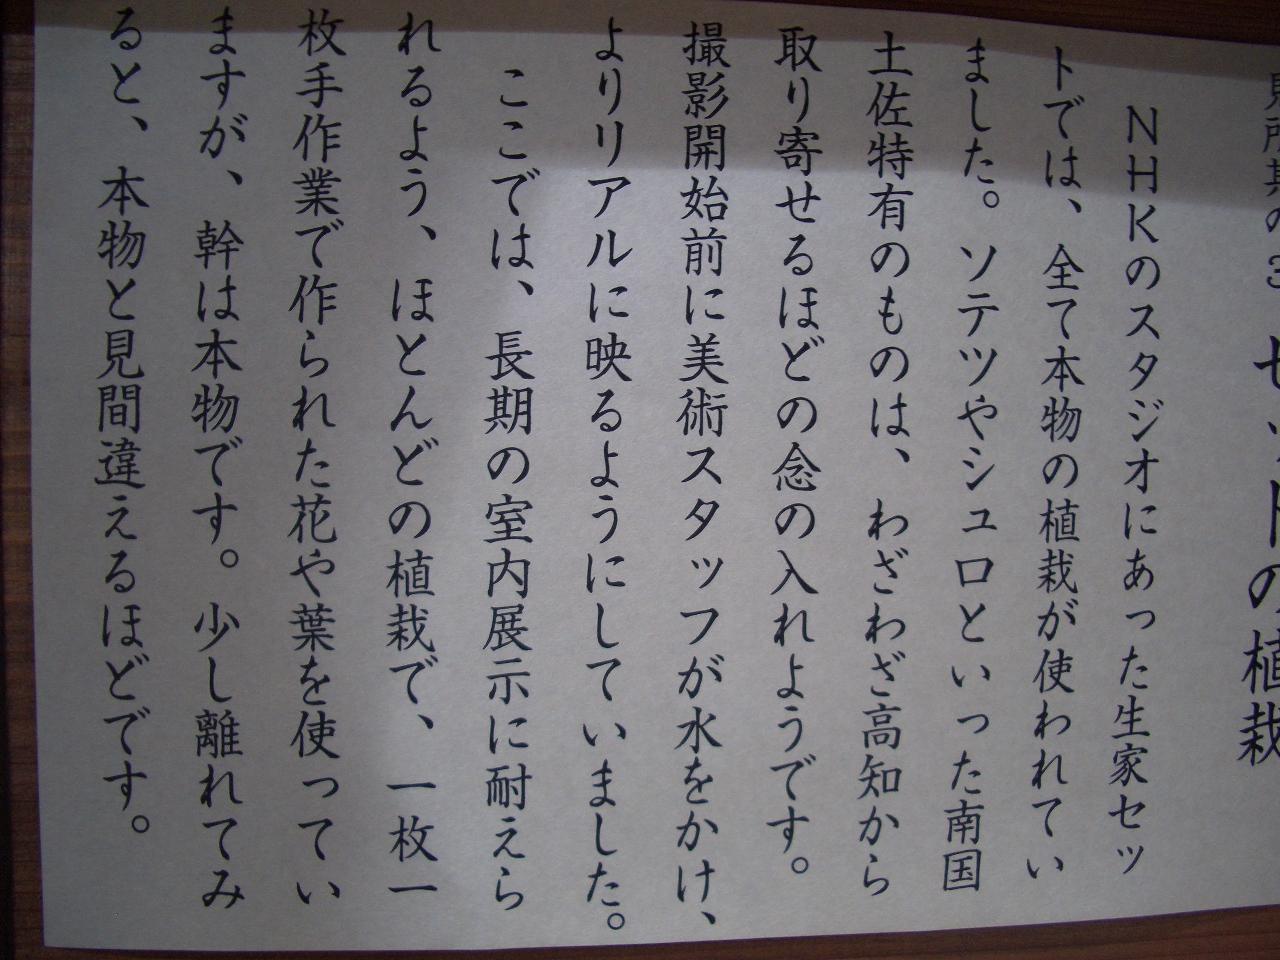 セットの植栽
NHKのスタジオにあった生家セッ
トでは、全て本物の植栽が使われてい
ました。ソテツやシュロといった南国
土佐特有のものは、わざわざ高知から
取り寄せるほどの念の入れようです。
撮影開始前に美術スタッフが水をかけ、
よりリアルに映るようにしていました。
ここでは、長期の室内展示に耐えら
れるよう、ほとんどの植栽で、一枚一
枚手作業で作られた花や葉を使ってい
ますが、幹は本物です。少し離れてみ
ると、本物と見間違えるほどです。